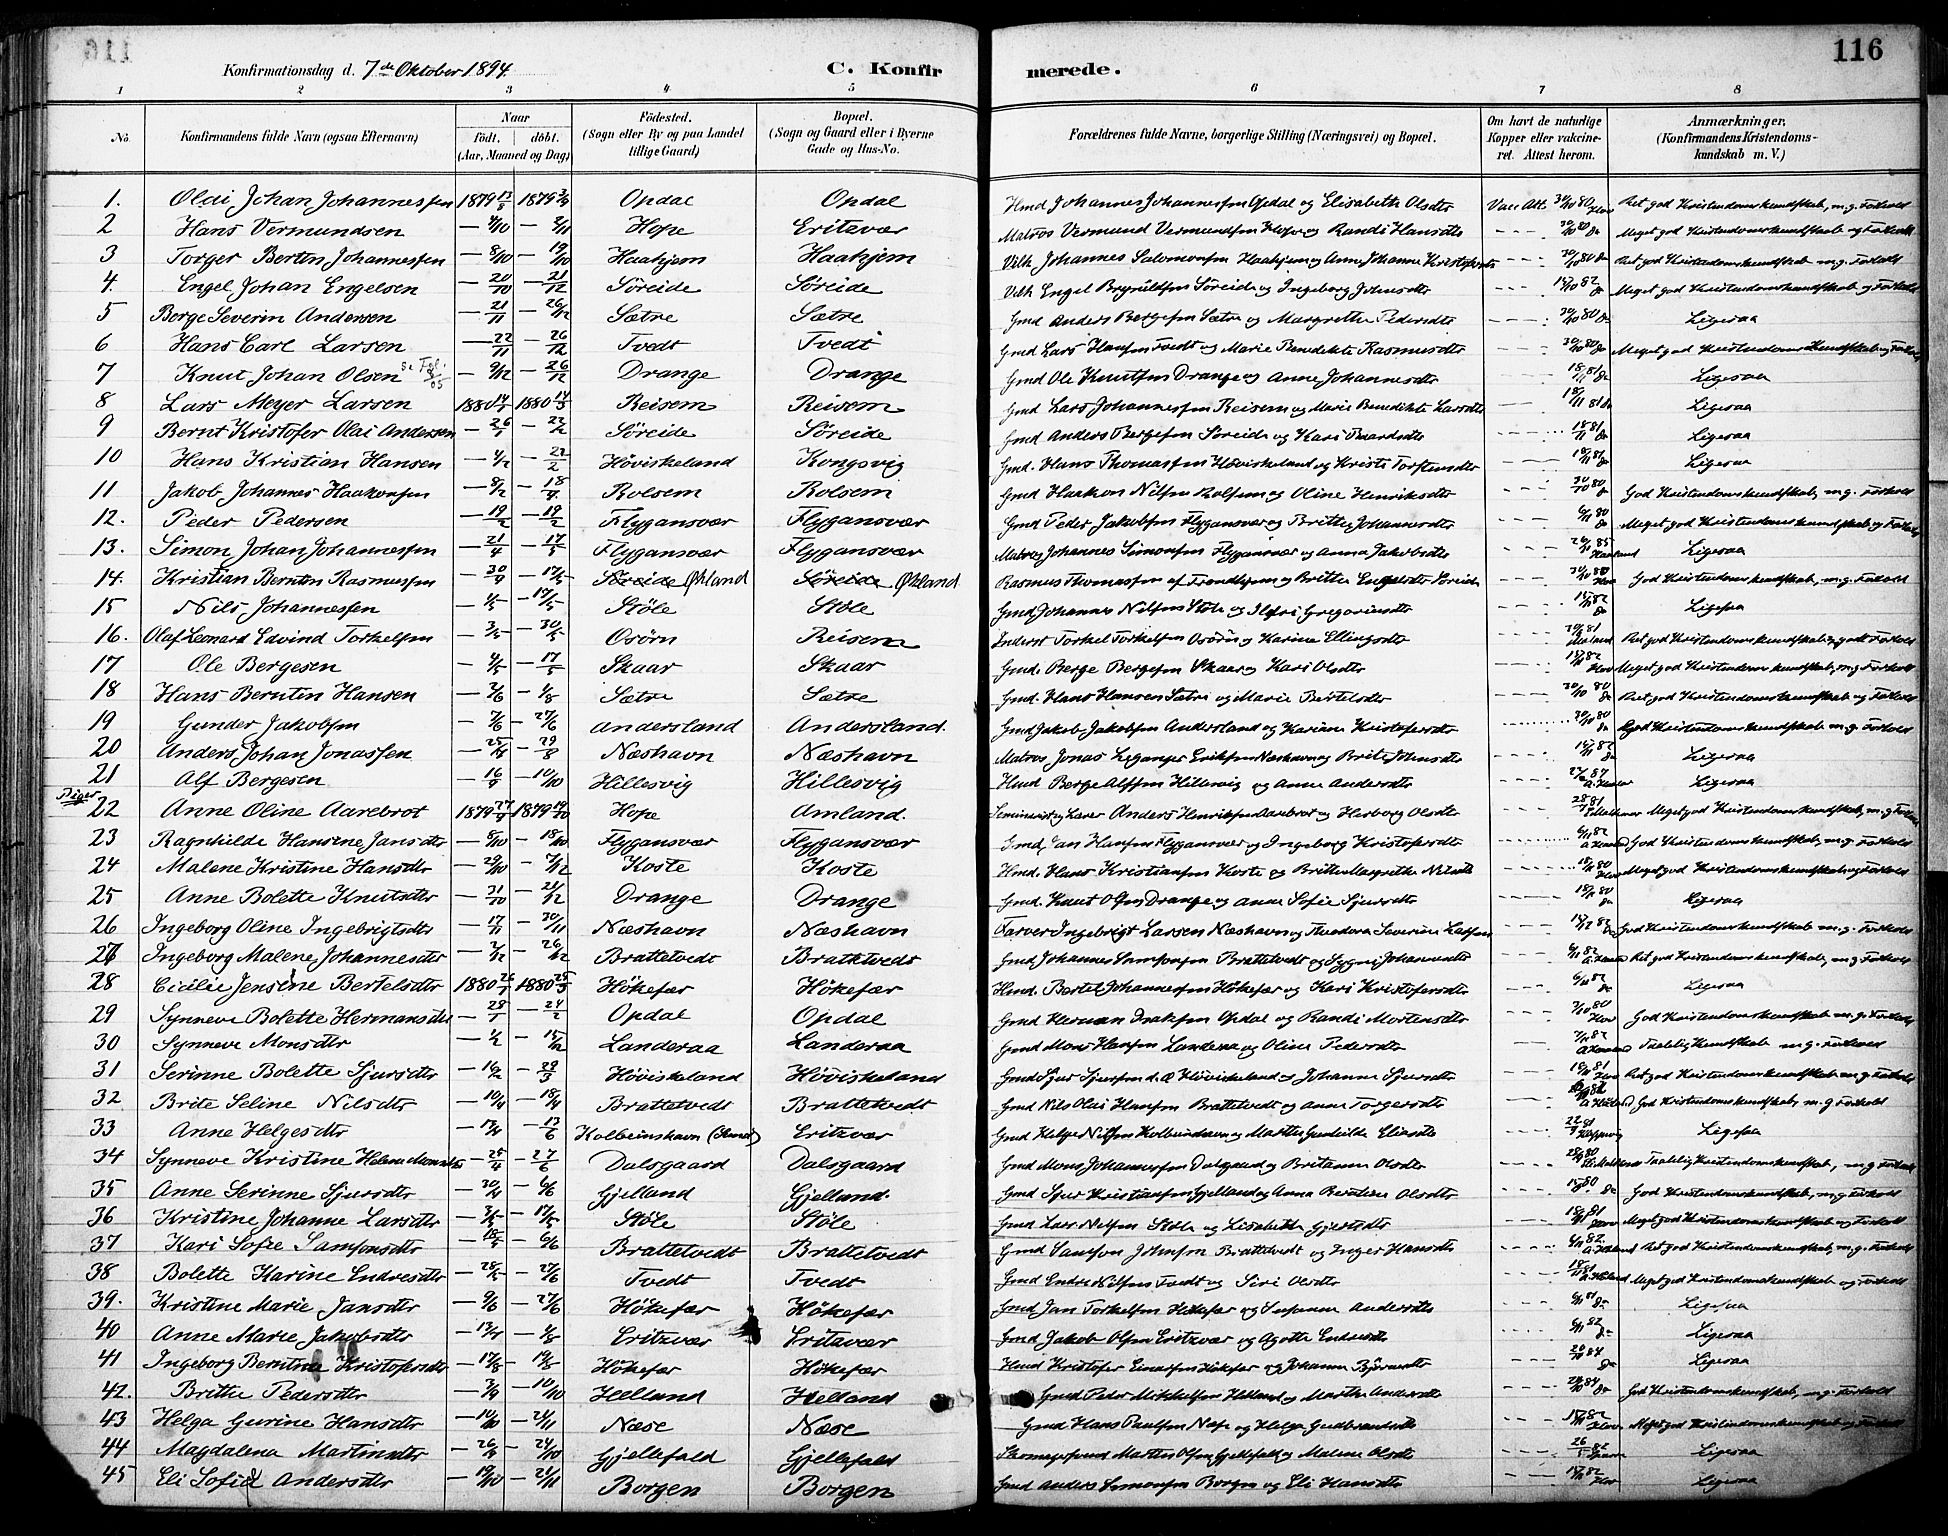 Konfirmationsdag d. 7de Oktober 1894. C. Konfirmerede. 116
1 2 3 4 5 6 7 8
No. Konfirmandens fulde Navn (ogsaa Efternavn) Naar födt. döbt. (Aar, Maaned og Dag) Födested. (Sogn eller By og paa Landet tillige Gaard) Bopæl. (Sogn og Gaard eller i Byerne Gade og Hus-No. Forældrenes fulde Navne, borgerlige Stilling (Næringsvei) og Bopæl. Om havt de naturlige Kopper eller vakcineret. Attest herom. Anmærkninger, (Konfirmandens Kristendomskundskab m. V.)
1. Olai Johan Johannessen 1879 13/8 1879 Opdal Opdal Gmd Johannes Johannessen Opdal og Elisabeth Olsdtr Vacc Att. Ret god Kristendomskundskab, m.g. Forhold
2 Hans Vermundsen Hope Eritzvær Matros Vermund Vermundsen Hope og Randi Hansdtr Meget god Kristendomskundskab og Forhold
3 Torger Bertin Johannessen Haahjem Haahjem Johannes Salomonsen Haahjem og Anne Johanne Kristofersdtr Ret god Kristendomskundskab m.g. Forhold
4. Engel Johan Engelsen 20/10 21/12 Söreide Söreide Engel Söreide og Ingeborg Johnsdtr Meget god Kristendomskundskab og Forhold
5 Berge Severin Andersen 21/11 26/12 Sætre Sætre Gmd Anders Bergesen Sætre og Margrethe Pedersdtr Ligesaa
6 Hans Carl Larsen 22/11 26/12 Tvedt Tvedt Gmd Lars Hansen Tvedt og Marie Benedikte Rasmusdtr Meget god Kristendomskundskab og Forhold
7 Knut Johan Olsen 9/12 26/12 Drange Drange Gmd Ole Knutsen Drange og Anne Johannesdtr Ligesaa
8 Lars Meyer Larsen 1880 14/1 1880 14/3 Reisem Reisem Gmd Lars Johannessen Reisem og Marie Benedikte Larsdtr Ligesaa
9 Bernt Kristofer Olai Andersen 26/1 22/2 Söreide Söreide Gmd Anders Bergesen Söreide og Kari Baardsdtr Ligesaa
10 Hans Kristian Hansen 4/2 Höviskeland Kongsvig Gmd. Hans Thomassen Höviskeland og Kristi Torstensdtr Ligesaa
11 Jakob Johannes Haakonsen 8/2 18/4 Rolsem Rolsem Gmd Haakon Nilsen Rolsem og Oline Henriksdtr God Kristendomskundskab, m.g. Forhold
12. Peder Pedersen 19/2 19/2 Flygansvær Flygansvær Gmd Peder Jakobsen Flygansvær og Brithe Johannesdtr Meget god Kristendomskundskab og Forhold
13. Simon Johan Johannessen 21/4 17/5 Flygansvær Flygansvær Matros Johannes Simonsen Flygansvær og Anna Jakobsdtr Ligesaa
14. Kristian Berntin Rasmussen 17/5 Söreide Økland Söreide Økland Rasmus Thomassen af Trondhjem og Brithe Engelsdtr Söreide God Kristendomskundskab, m.g. Forhold
15 Nils Johannessen 4/5 17/5 Stöle Stöle Gmd Johannes Nilsen Stöle og Gregoriusdtr Ligesaa
16. Olaf Leonard Edvind Torkelsen 3/5 30/5 Osörn Reisem Inderst Torkel Torkelsen Osörn og Karine Ellingsdtr Ret god Kristendomskundskab, godt Forhold
17 Ole Bergesen 4/5 17/5 Skaar Skaar Gmd. Berge Bergesen Skaar og Kari Olsdtr Meget god Kristendomskundskab, m.g. Forhold
18 Hans Berntin Hansen 2/6 1/8 Sætre Sætre Gmd. Hans Hansen Sætre og Marie Bertelsdtr Ret god Kristendomskundskab og Forhold
19 Gunder Jakobsen 7/6 27/6 Andersland Andersland. Gmd Jakob Jakobsen Andersland og Karine Kristofersdtr God Kristendomskundskab m.g. Forhold
20 Anders Johan Jonassen 29/8 Næshavn Næshavn Matros Jonas Leganger Eriksen Næshavn og Brite Johnsdtr Ligesaa
21 Alf Bergesen 16/9 10/10 Hillesvig Hillesvig Hmd Berge Alfsen Hillesvig og Anne Andersdtr Ligesaa
Piger
22 Anne Oline Aarebrot 1879 1879 Hope Amland. Seminarist og Lærer Anders Henriksen Aarebrot og Herborg Olsdtr Meget god Kristendomskundskab, m.g Forhold
23 Ragnhilde Hansine Jansdtr 8/10 18/10 Flygansvær Flygansvær Gmd. Jan Hansen Flygansvær og Ingeborg Kristofersdtr God Kristendomskundskab, m.g. Forhold
24 Malene Kristine Hansdtr 29/10 7/12 Koste Koste Hmd. Hans Kristiansen Koste og Brithe Margrethe Nilsdtr Meget god Kristendomskundskab og Forhold
25 Anne Bolette Knutsdtr 31/10 21/12 Drange Drange Gmd. Knut Olsen Drange og Anne Sofie Sjursdtr Ligesaa
26 Ingeborg Oline Ingebrigtsdtr 17/11 30/11 Næshavn Næshavn Farver Ingebrigt Larsen Næshavn og Theodora Severine Larsen God Kristendomskundskab m.g. Forhold
27 Ingeborg Malene Johannesdtr 2/12 26/12 Brattetvedt Brattetvedt Gmd Johannes Samsonsen Brattetvedt og Sygni Johannesdtr Ret god Kristendomskundskab, m.g. Forhold
28 Cicilie Jensine Bertelsdtr 1880 26/1 1880 Hökefær Hökefær Hmd. Bertel Johannessen Hökefær og Kari Kristofersdtr Ligesaa
29 Synneve Bolette Hermansdtr 28/1 24/2 Opdal Opdal Gmd Herman Isaksen Opdal og Randi Mortensdtr God Kristendomskundskab m.g. Forhold
30 Synneve Monsdtr 1/2 15/2 Landeraa Landeraa Gmd Mons Hansen Landeraa og Oline Pedersdtr Taalelig Kundskab m.g. Forhold
31 Serinne Bolette Sjursdtr 16/2 29/3 Höviskeland Höviskeland Gmd Sjur Sjursen d.æ Höviskeland og Johanne Sjursdtr Ret god Kristendomskundskab m.g. Forhold
32 Brite Seline Nilsdtr 10/4 18/4 Brattetvedt Brattetvedt Gmd Nils Olai Hansen Brattetvedt og Anne Torgersdtr God Kristendomskundskab, m.g Forhold
33 Anne Helgesdtr 13/6 Kolbeinshavn Eritzvær Gmd Helge Nilsen Kolbeinshavn og Marthe Gunhilde Eliasdtr Ligesaa
34 Synneve Kristine Helene Monsdtr 25/4 27/6 Dalsgaard Dalsgaard Gmd Mons Johannessen Dalsgaard og Britanne Olsdtr Taalelig Kristendomskundskab, m.g. Forhold
35 Anne Serinne Sjursdtr 6/6 Gjelland Gjelland. Gmd Sjur Kristiansen Gjelland og Anna Berntine Olsdtr God Kristendomskundskab, m.g Forhold
36 Kristine Johanne Larsdtr 3/5 17/5 Stöle Stöle Gmd Lars Nilsen Stöle og Lisabethe Gjertsdtr Meget god Kristendomskundskab og Forhold
37 Kari Sofie Samsonsdtr 18/5 6/6 Brattetvedt Brattetvedt Gmd Samson Johnsen Brattetvedt og Inger Hansdtr Ret god Kristendomskundskab, m.g. Forhold
38 Bolette Karine Endresdtr 28/5 27/6 Tvedt Tvedt Gmd Endre Nilsen Tvedt og Siri Olsdtr Meget god Kristendomskundskab og Forhold
39. Kristine Marie Jansdtr 9/6 27/6 Hökefær Hökefær Gmd Jan Torkelsen Hökefær og Susanne Andersdtr Ligesaa
40 Anne Marie Jakobsdtr 13/7 1/8 Eritzvær Eritzvær Gmd Jakob Olsen Eritzvær og Agathe Endresdtr Ligesaa
41 Ingeborg Berntine Kristofersdtr Hökefær Hökefær Hmd Kristofer Hökefær og Johanne Björnsdtr Ligesaa
42. Brithe Pedersdtr 3/9 10/10 Helland Helland Gmd Peder Mikkelsen Helland og Marthe Andersdtr God Kristendomskundskab, m.g. Forhold
43 Helga Gurine Hansdtr 10/10 21/11 Næse Næse Gmd Hans Paulsen Næse og Helga Gudbrandsdtr Meget god Kristendomskundskab og Forhold
44 Magdalena Martinsdtr 26/9 24/10 Gjellefald Gjellefald Martin Olsen Gjellefald og Malene Olsdtr Ligesaa
45 Eli Sofie Andersdtr 19/10 21/11 Borgen Borgen Gmd Anders Simonsen Borgen og Eli Hansdtr Ligesaa